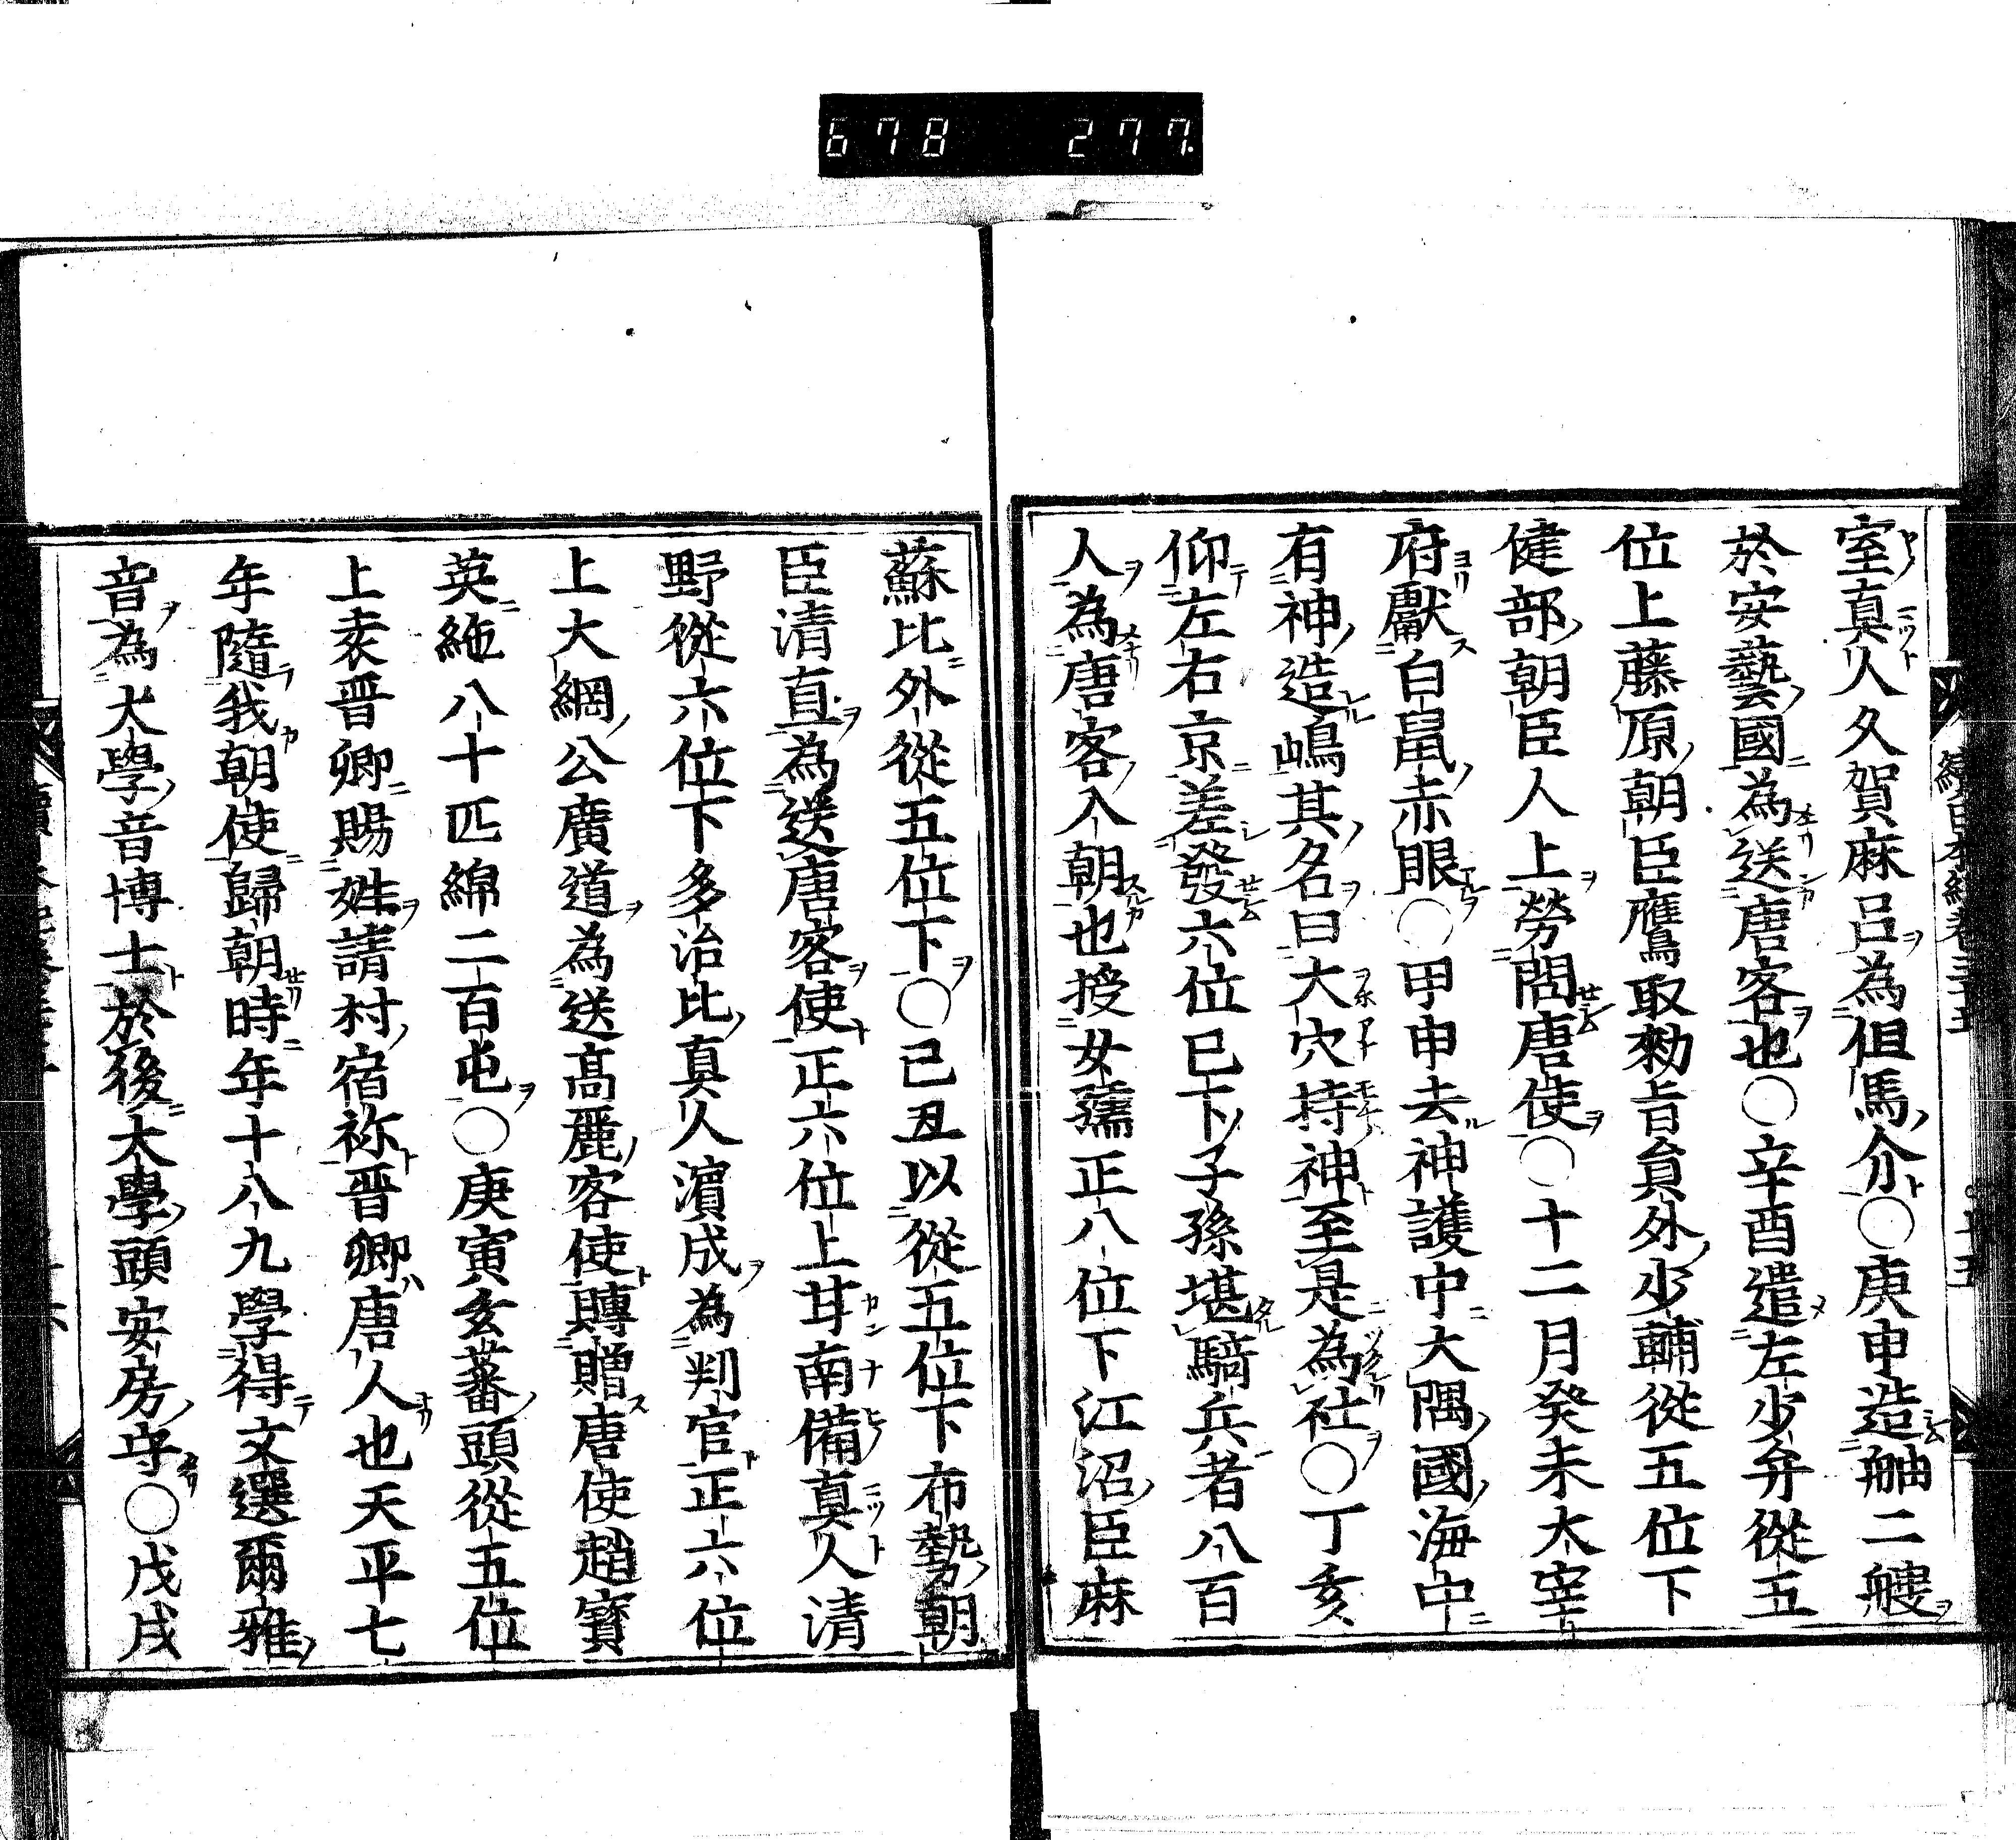 678 277
室真人久賀麻呂為但馬介○庚申造舶二艘
於安藝國為送唐客也○辛酉遣左少弁從五
位上藤原朝臣鷹取勅旨貟外少輔從五位下
健部朝臣人上勞問唐使○十二月癸未大宰
府獻白鼠赤眼○甲申去神護中大隅國海中
有神造嶋其名曰大穴持神至是為社○丁亥
仰左右京差發六位已下子孫堪騎兵者八百
人為唐客入朝也授女孺正八位下江沼臣麻
蘇比外從五位下○己丑以從五位下布勢朝
臣清直為送唐客使正六位上甘南備真人清
野從六位下多治比真人濵成為判官正六位
上大網公廣道為送髙麗客使賻贈唐使趙寳
英絁八十匹綿二百屯○庚寅玄蕃頭從五位
上袁晋卿賜姓請村宿祢晋卿唐人也天平七
年隨我朝使歸朝時年十八九學得文選爾雅
音為大學音博士於後大學頭安房守○戊戌